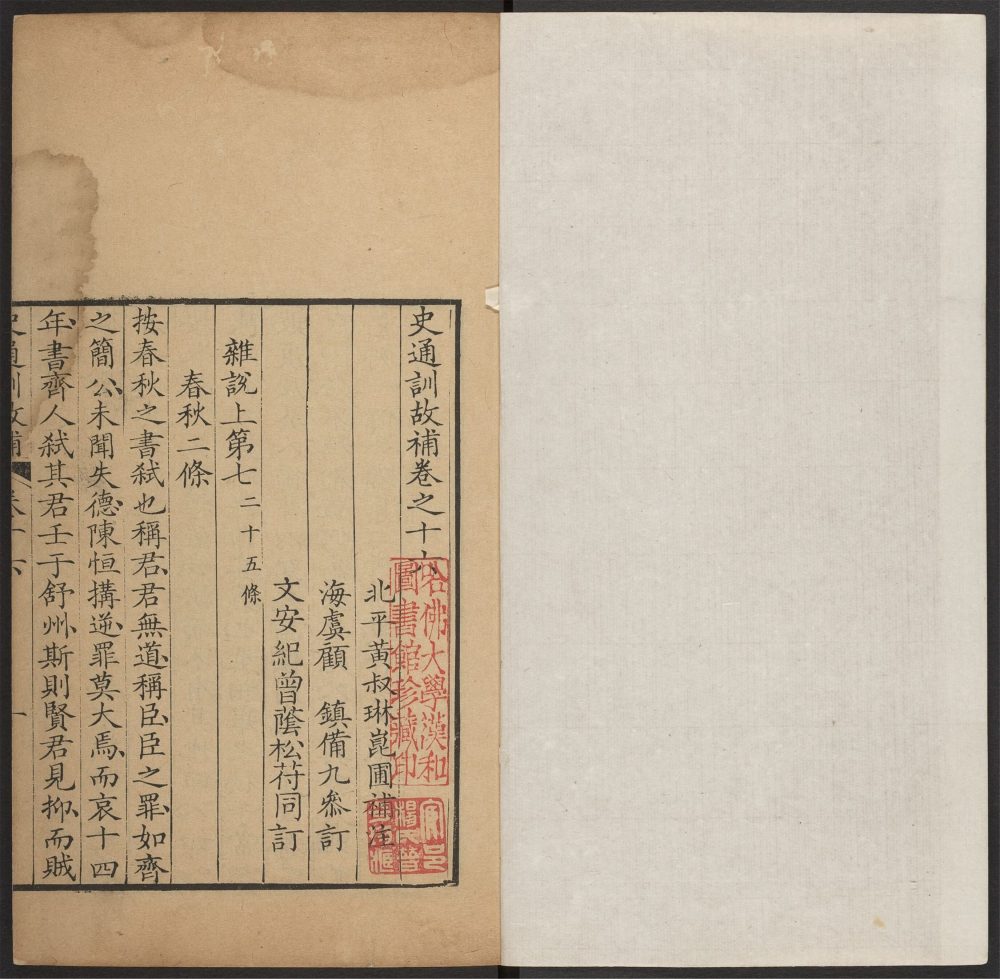 史通訓故補卷之十六
北平黃叔琳崑圃補注
海虞顧　鎮備九叅訂
文安紀曾蔭松苻同訂
雜說上第七 二十五條
春秋二條
按春秋之書弑也稱君君無道稱臣臣之罪如齊
之簡公未聞失德陳恒搆逆罪莫大焉而哀十四
年書齊人弑其君壬于舒州斯則賢君見抑而賊
史通訓故補 卷十六 一
哈佛大學漢和
圖書館珍藏印